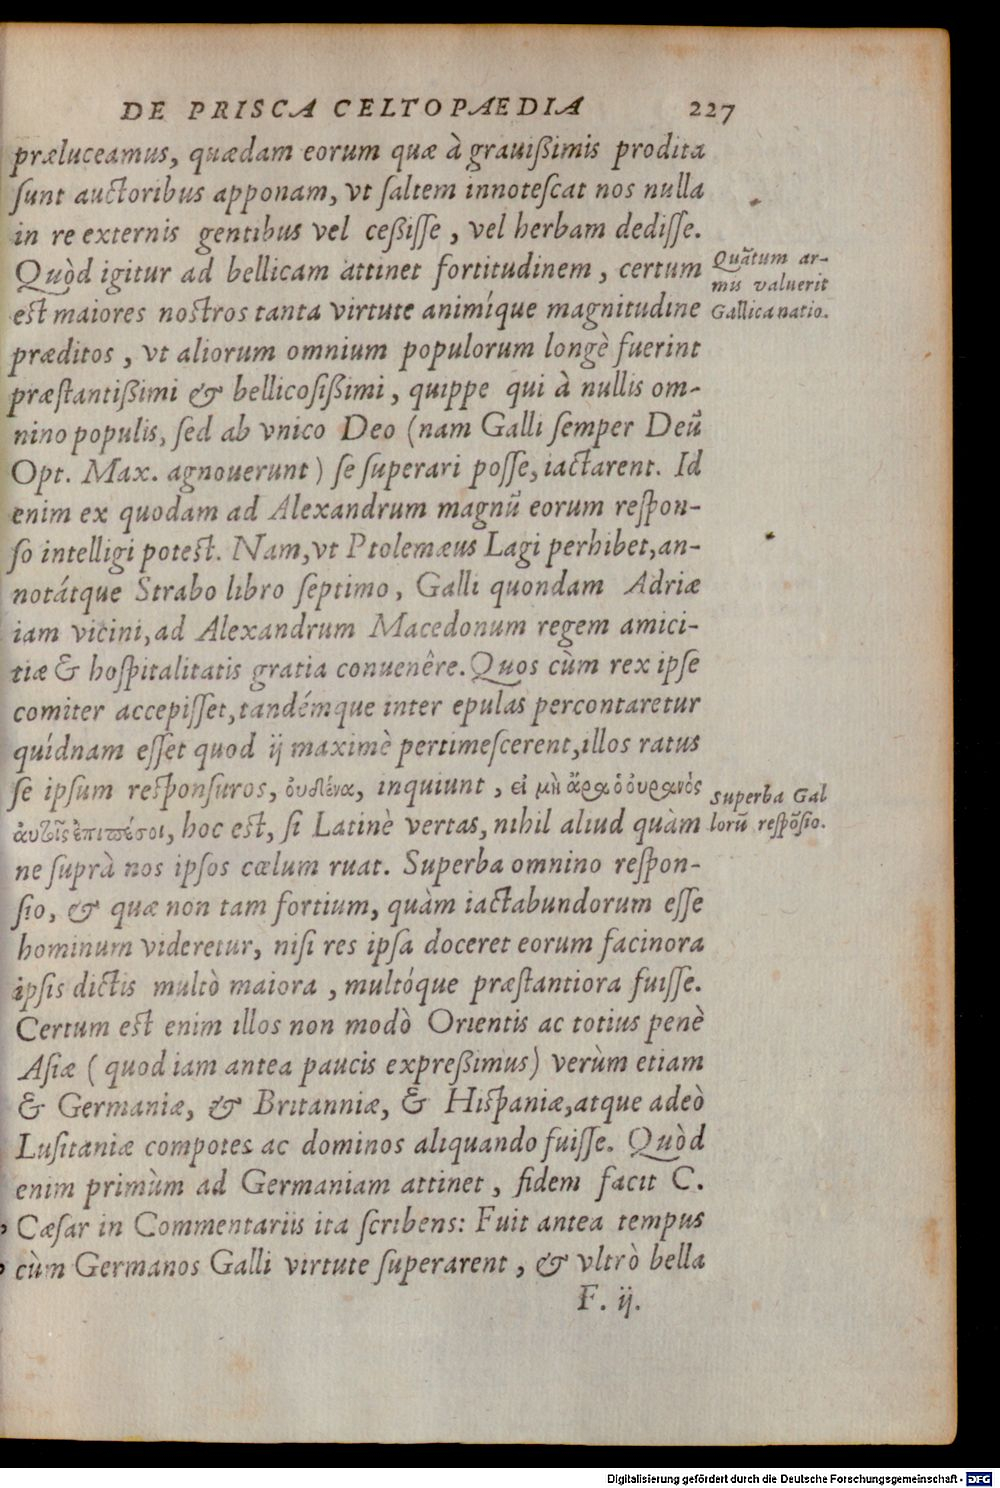 DE PRISCA CELTOPAEDIA 227
præluceamus, quædam eorum quæ à grauißimis prodita
ſunt auctoribus apponam, vt ſaltem innoteſcat nos nulla
in re externis gentibus vel ceßiſſe, vel herbam dediſſe.
Quòd igitur ad bellicam attinet fortitudinem, certum
Quãtum ar-
mis valuerit
Gallica natio.
est maiores nostros tanta virtute animíque magnitudine
præditos, vt aliorum omnium populorum longè fuerint
præſtantißimi & bellicoſißimi, quippe qui à nullis om-
nino populis, ſed ab vnico Deo (nam Galli ſemper Deũ
Opt. Max. agnouerunt) ſe ſuperari poſſe, iactarent. Id
enim ex quodam ad Alexandrum magnũ eorum reſpon-
ſo intelligi potest. Nam, vt Ptolemæus Lagi perhibet, an-
notátque Strabo libro ſeptimo, Galli quondam Adriæ
iam vicini, ad Alexandrum Macedonum regem amici-
tiæ & hoſpitalitatis gratia conuenêre. Quos cùm rex ipſe
comiter accepiſſet, tandémque inter epulas percontaretur
quídnam eſſet quod ij maximè pertimeſcerent, illos ratus
ſe ipſum reſponſuros, ὀυδένα, inquiunt, εἰ μὴ ἄρα ὁ ὀυρανός
ἀυτοῖς ἐπιπέσοι, hoc est, ſi Latinè vertas, nihil aliud quàm
Superba Gal
lorũ reſpõſio.
ne ſuprà nos ipſos cœlum ruat. Superba omnino reſpon-
ſio, & quæ non tam fortium, quàm iactabundorum eſſe
hominum videretur, niſi res ipſa doceret eorum facinora
ipſis dictis multò maiora, multóque præſtantiora fuiſſe.
Certum est enim illos non modò Orientis ac totius penè
Aſiæ (quod iam antea paucis expreßimus) verùm etiam
& Germaniæ, & Britanniæ, & Hiſpaniæ, atque adeò
Luſitaniæ compotes ac dominos aliquando fuiſſe. Quòd
enim primùm ad Germaniam attinet, fidem facit C.
Cæſar in Commentariis ita ſcribens: Fuit antea tempus
cùm Germanos Galli virtute ſuperarent, & vltrò bella
F. ij.
Digitalisierung gefördert durch die Deutsche Forschungsgemeinschaft - DFG